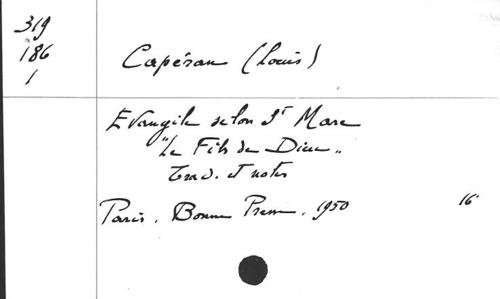 319
186
1
Capéran (Louis)
Evangile selon St Marc
"Le Fils de Dieu"
Trad. et notes
Paris. Bonne Presse. 1950 16°